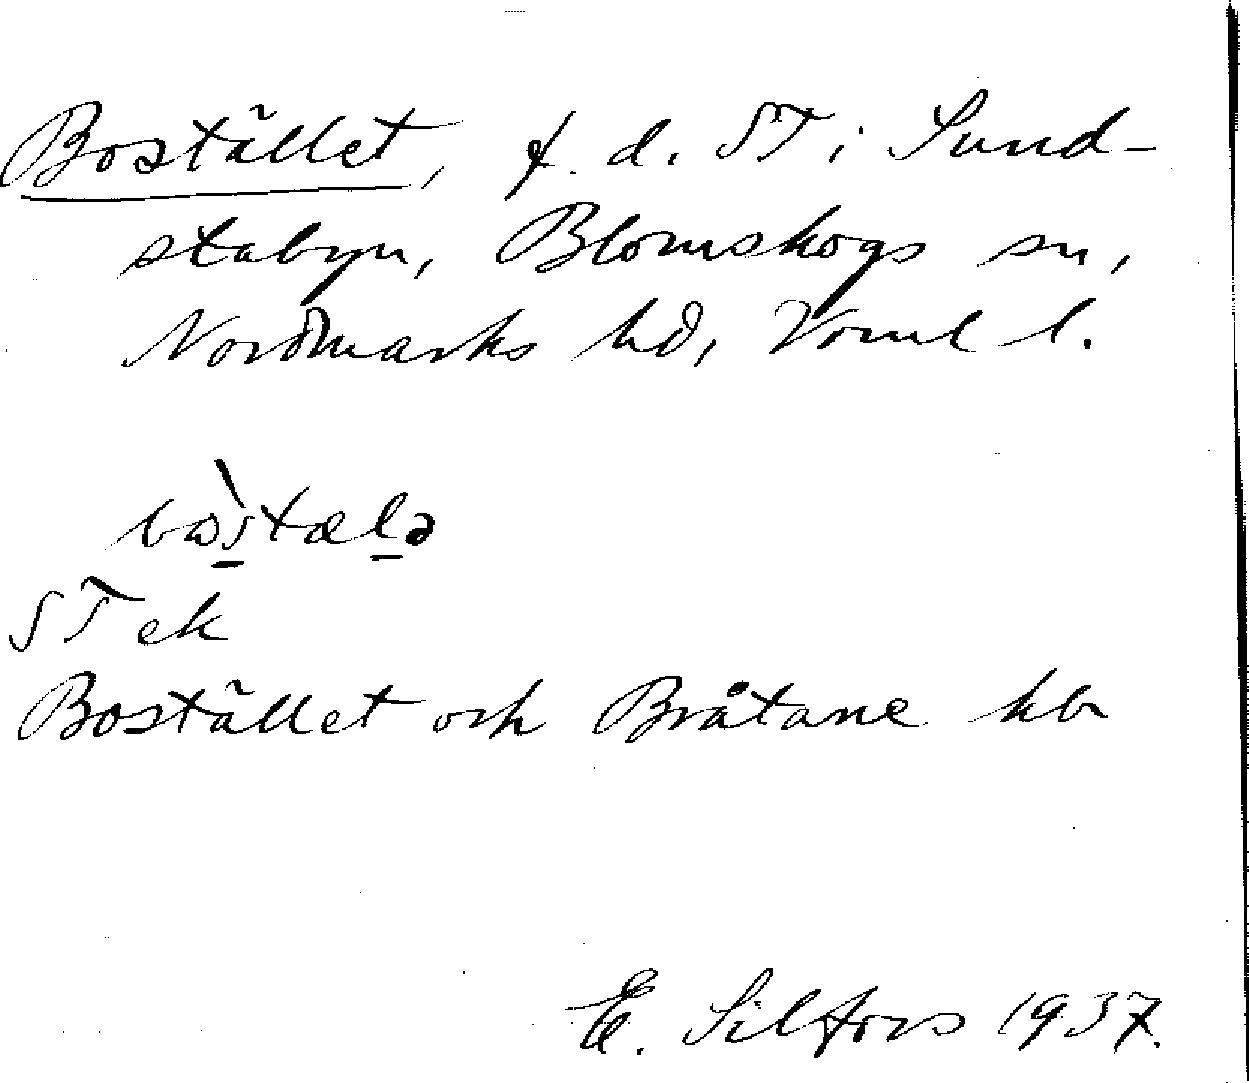 Bostället, f. d. ST i Sund-
stabyn, Blomskogs sn,
Nordmarks hd, Vrml l.
bo̍stælə
ST ek
Bostället och Bråtane kbr
E. Silfors 1937.